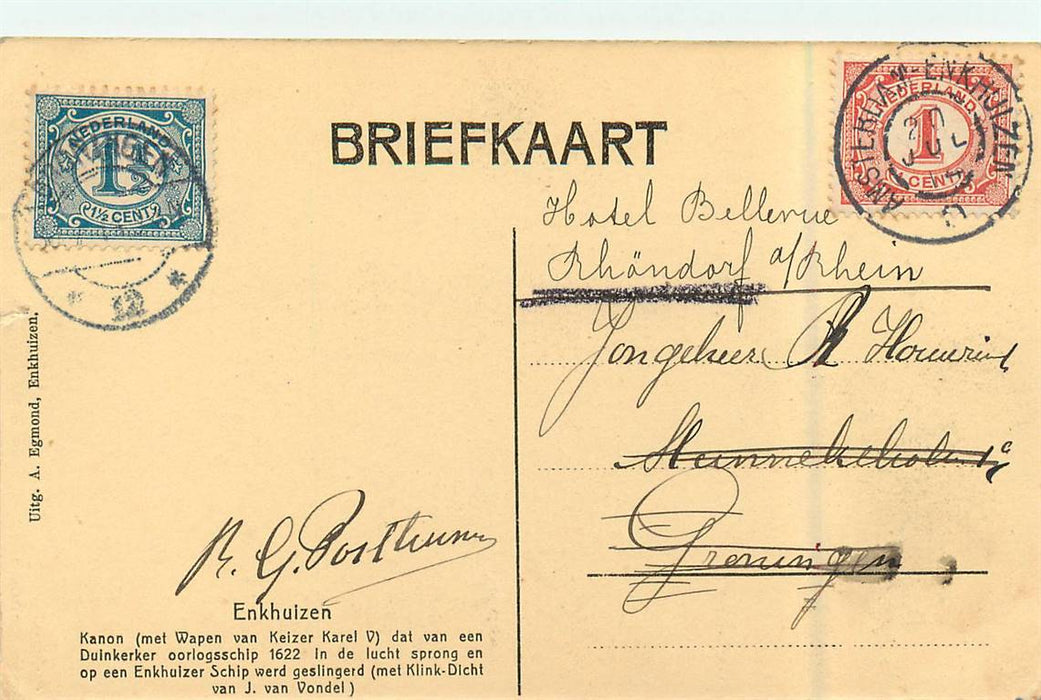 BRIEFKAART
NEDERLAND
1½
1½ CENT
AMSTERDAM-ENKHUIZEN
NEDERLAND
1
CENT
Hotel Bellevue
Rhöndorf a/Rhein
Jongeheer R
Groningen
Uitg. A. Egmond, Enkhuizen.
R. G. Posthumus
Enkhuizen
Kanon (met Wapen van Keizer Karel V) dat van een
Duinkerker oorlogsschip 1622 in de lucht sprong en
op een Enkhuizer Schip werd geslingerd (met Klink-Dicht
van J. van Vondel)